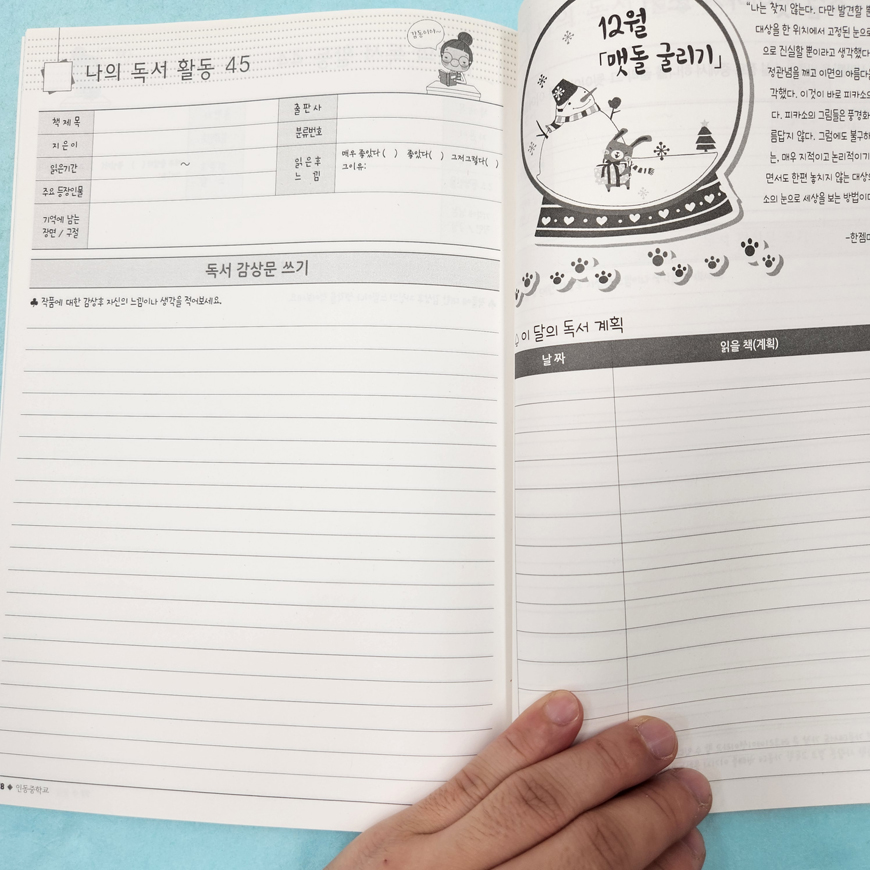 나의 독서 활동 45
감동이야~
책 제 목
출 판 사
지 은 이
분류번호
읽은기간 ~
읽 은 후
느 낌
매우 좋았다 ( ) 좋았다 ( ) 그저그렇다 ( )
그이유:
주요 등장인물
기억에 남는
장면 / 구절
독서 감상문 쓰기
♣ 작품에 대한 감상후 자신의 느낌이나 생각을 적어보세요.
8 ◆ 인동중학교
12월
「맷돌 굴리기」
"나는 찾지 않는다. 다만 발견할 뿐
대상을 한 위치에서 고정된 눈으
으로 진실할 뿐이라고 생각했다
정관념을 깨고 이면의 아름다
각했다. 이것이 바로 피카소의
다. 피카소의 그림들은 풍경화
름답지 않다. 그럼에도 불구하
는, 매우 지적이고 논리적이기
면서도 한편 놓치지 않는 대상
소의 눈으로 세상을 보는 방법이다
-한젬마
이 달의 독서 계획
날 짜
읽을 책(계획)